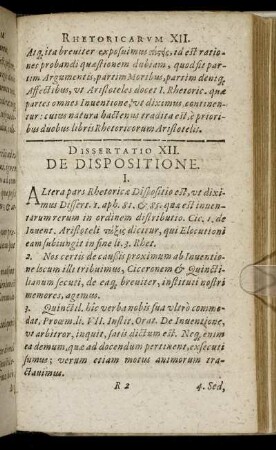 RHETORICARVM XII.
Atq, ita breuiter exposuimus πίςεις, id est ratio-
nes probandi quæstionem dubiam, quod sit par-
tim Argumentis, partim Moribus, partim deniq
Affectibus, vt Aristoteles docet I. Rhetoric. quæ
partes omnes Inuentione, vt diximus, continen-
tur: cuius natura hactenus tradita est, è priori-
bus duobus libris Rhetoricorum Aristotelis.
DISSERTATIO XII.
DE DISPOSITIONE.
I.
ALtera pars Rhetoricæ Dispositio est, vt dixi-
mus Dissert. 1. aph. 81. & 85. quæ est inuen-
tarum rerum in ordinem distributio. Cic. 1. de
Inuent. Aristoteli τάξις dicitur, qui Elocutioni
eam subiungit in fine li. 3. Rhet.
2. Nos certis de caussis proximum ab Inuentio-
ne locum illi tribuimus, Ciceronem & Quincti-
lianum secuti, de eaq, breuiter, instituti nostri
memores, agemus.
3. Quinctil. hic verba nobis sua vltrò commo-
dat, Proœm. li. VII. Instit. Orat. De Inuentione,
vt arbitror, inquit, satis dictum est. Neq, enim
ea demum, quæ ad docendum pertinent, exsecuti
sumus; verum etiam motus animorum tra-
ctauimus.
R 2
4. Sed,